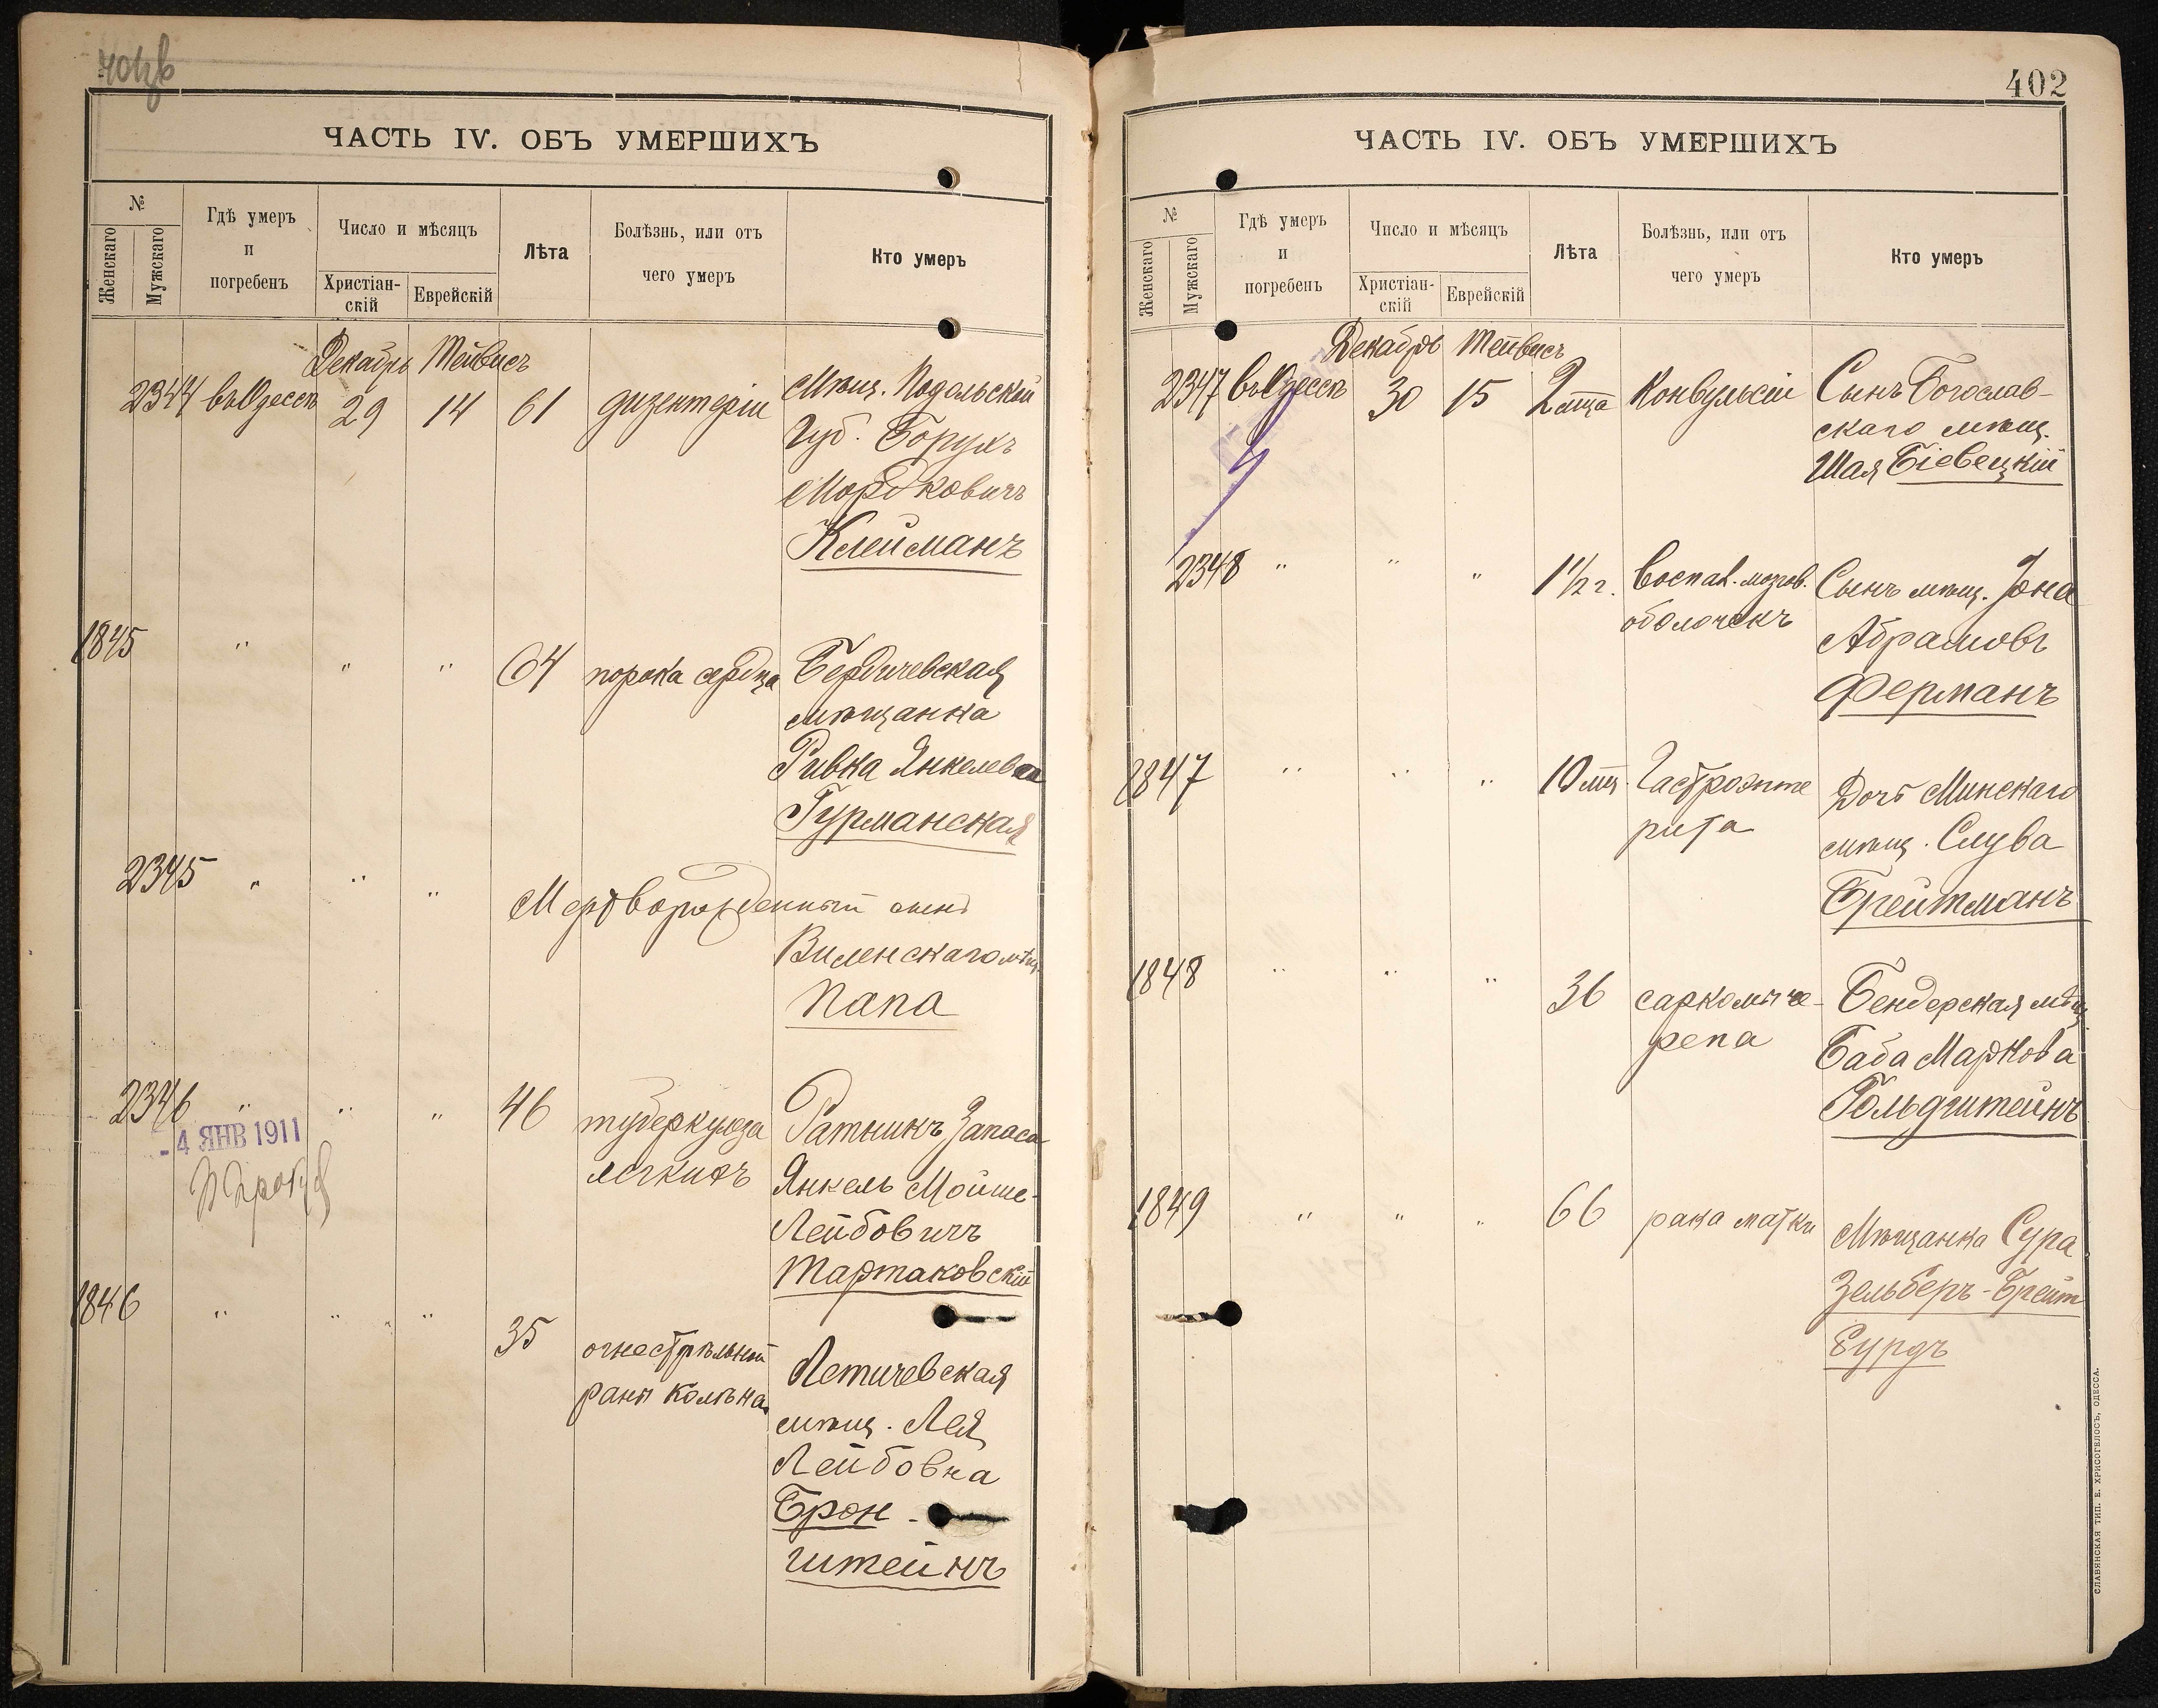 ЧАСТЬ IV. ОБЪ УМЕРШИХЪ
№
Женскаго
Мужскаго
Гдѣ умеръ
и
погребенъ
Число и мѣсяцъ
Христіан-
скій
Еврейскій
Лѣта
Болѣзнь, или отъ
чего умеръ
Кто умеръ
Декабрь Тейвисъ
2344 въ Одессѣ 29 14 61 дизентеріи Мѣщ. Подольской
Губ. Борухъ
Мордковичъ
Клейманъ
1845 " " " 64 порока сердца Бердичевская
мѣщанка
Ривка Янкелевна
Гурманская
2345 " " " Мертворожденный сынъ
Виленскаго мѣщ.
Папа
2346 " " " 46 туберкулеза Ратникъ Запаса
легкихъ Янкель Мойше-
Лейбовичъ
Тартаковскій
- 4 ЯНВ 1911
1846 " " " 35 огнестрѣльной
раны колѣна
Летичевская
мѣщ. Лея
Лейбовна
Брон-
штейнъ
402
ЧАСТЬ IV. ОБЪ УМЕРШИХЪ
№
Женскаго
Мужскаго
Гдѣ умеръ
и
погребенъ
Число и мѣсяцъ
Христіан-
скій
Еврейскій
Лѣта
Болѣзнь, или отъ
чего умеръ
Кто умеръ
Декабрь Тейвисъ
2347 въ Одессѣ 30 15 2 мца Конвульсіи Сынъ Богослав-
скаго мѣщ.
Шая Біевецкій
2348 " " " 1 1/2 г. Воспал. мозгов. Сынъ мѣщ. Іона
оболочекъ Абрамовъ
Ферманъ
1847 " " " 10 мц. Гастроэнте
рита
Дочь Минскаго
мѣщ. Слува
Брейтманъ
1848 " " " 36 саркомы че-
репа
Бендерская мѣщ.
Баба Маркова
Гольдштейнъ
1849 " " " 66 рака матки Мѣщанка Сура
Зельберъ-Брейт
Бурдъ
СЛАВЯНСКАЯ ТИП. Е. ХРИСОГЕЛОСЪ, ОДЕССА.